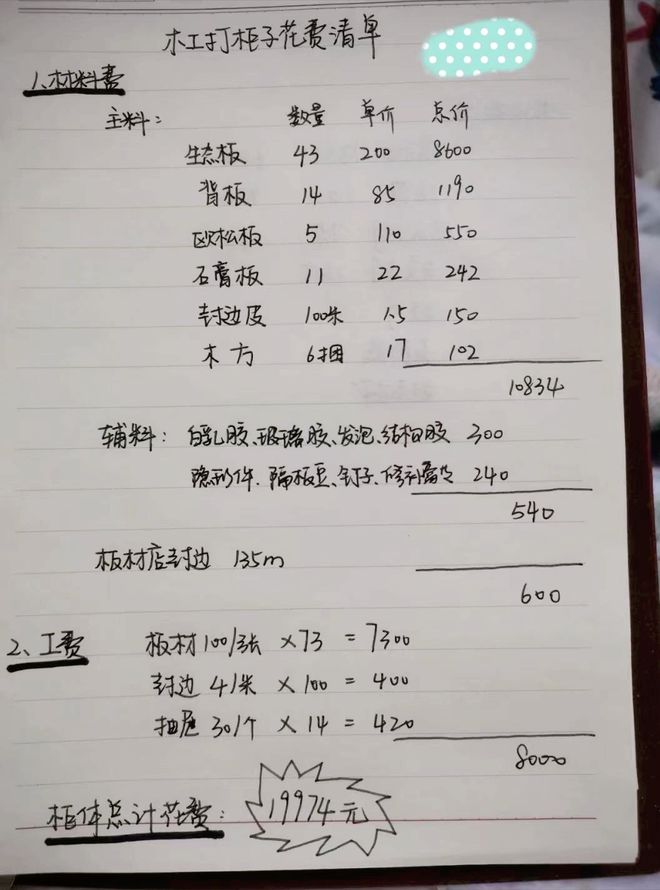 木工打柜子花费清单
1、材料费
主料: 数量 单价 总价
生态板 43 200 8600
背板 14 85 1190
欧松板 5 110 550
石膏板 11 22 242
封边皮 100米 1.5 150
木方 6捆 17 102
10834
辅料: 白乳胶、玻璃胶、发泡、结构胶 300
隐形件、隔板豆、钉子、修补膏等 240
540
板材店封边 135m
600
2、工费 板材100/张 ×73 = 7300
封边 4/米 × 100 = 400
抽屉 30/个 × 14 = 420
8000
柜体总计花费: 19974元